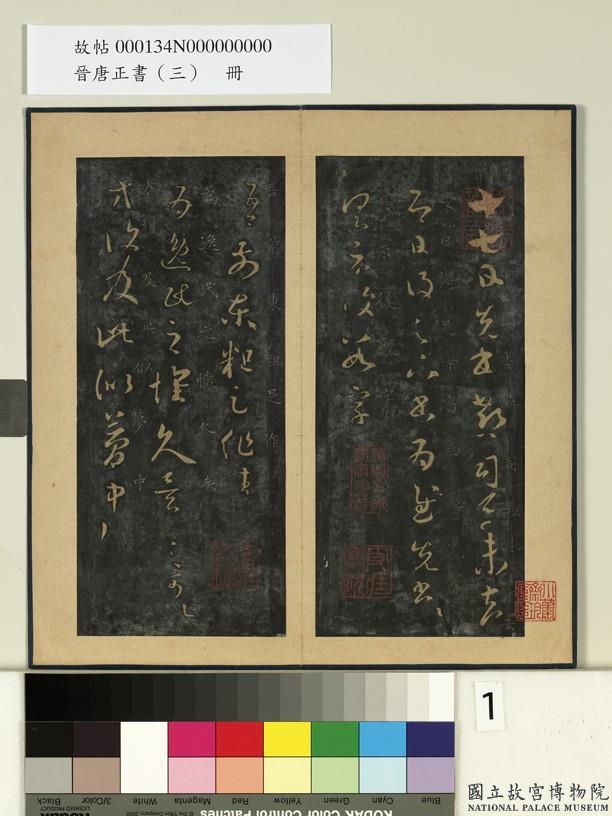 故帖 000134N000000000
晉唐正書（三） 冊
十七日先書郗司馬未去
即日得足下書為慰先書以
具示復數字
吾前東粗足作佳
為逸民之懷久矣足下何以
方復及此似夢中
1
Blue Cyan Green Yellow Red Magenta White 3/Color Black
KODAK Color Control Patches
LICENSED PRODUCT
國立故宮博物院
NATIONAL PALACE MUSEUM